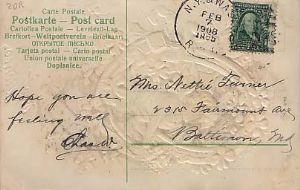 Carte Postale
Postkarte — Post card
Cartolina Postale — Levelezö-Lap
Brefkort — Weltpostverein — Briefkaart
ОТКРЫТОЕ ПИСЬМО
Tarjeta postal
Union postale universelle
Dopisnice.
FEB
7
1908
Hope you are
feeling well
Mrs. Nettie Turner
2315 Fairmount Ave
Baltimore, Md